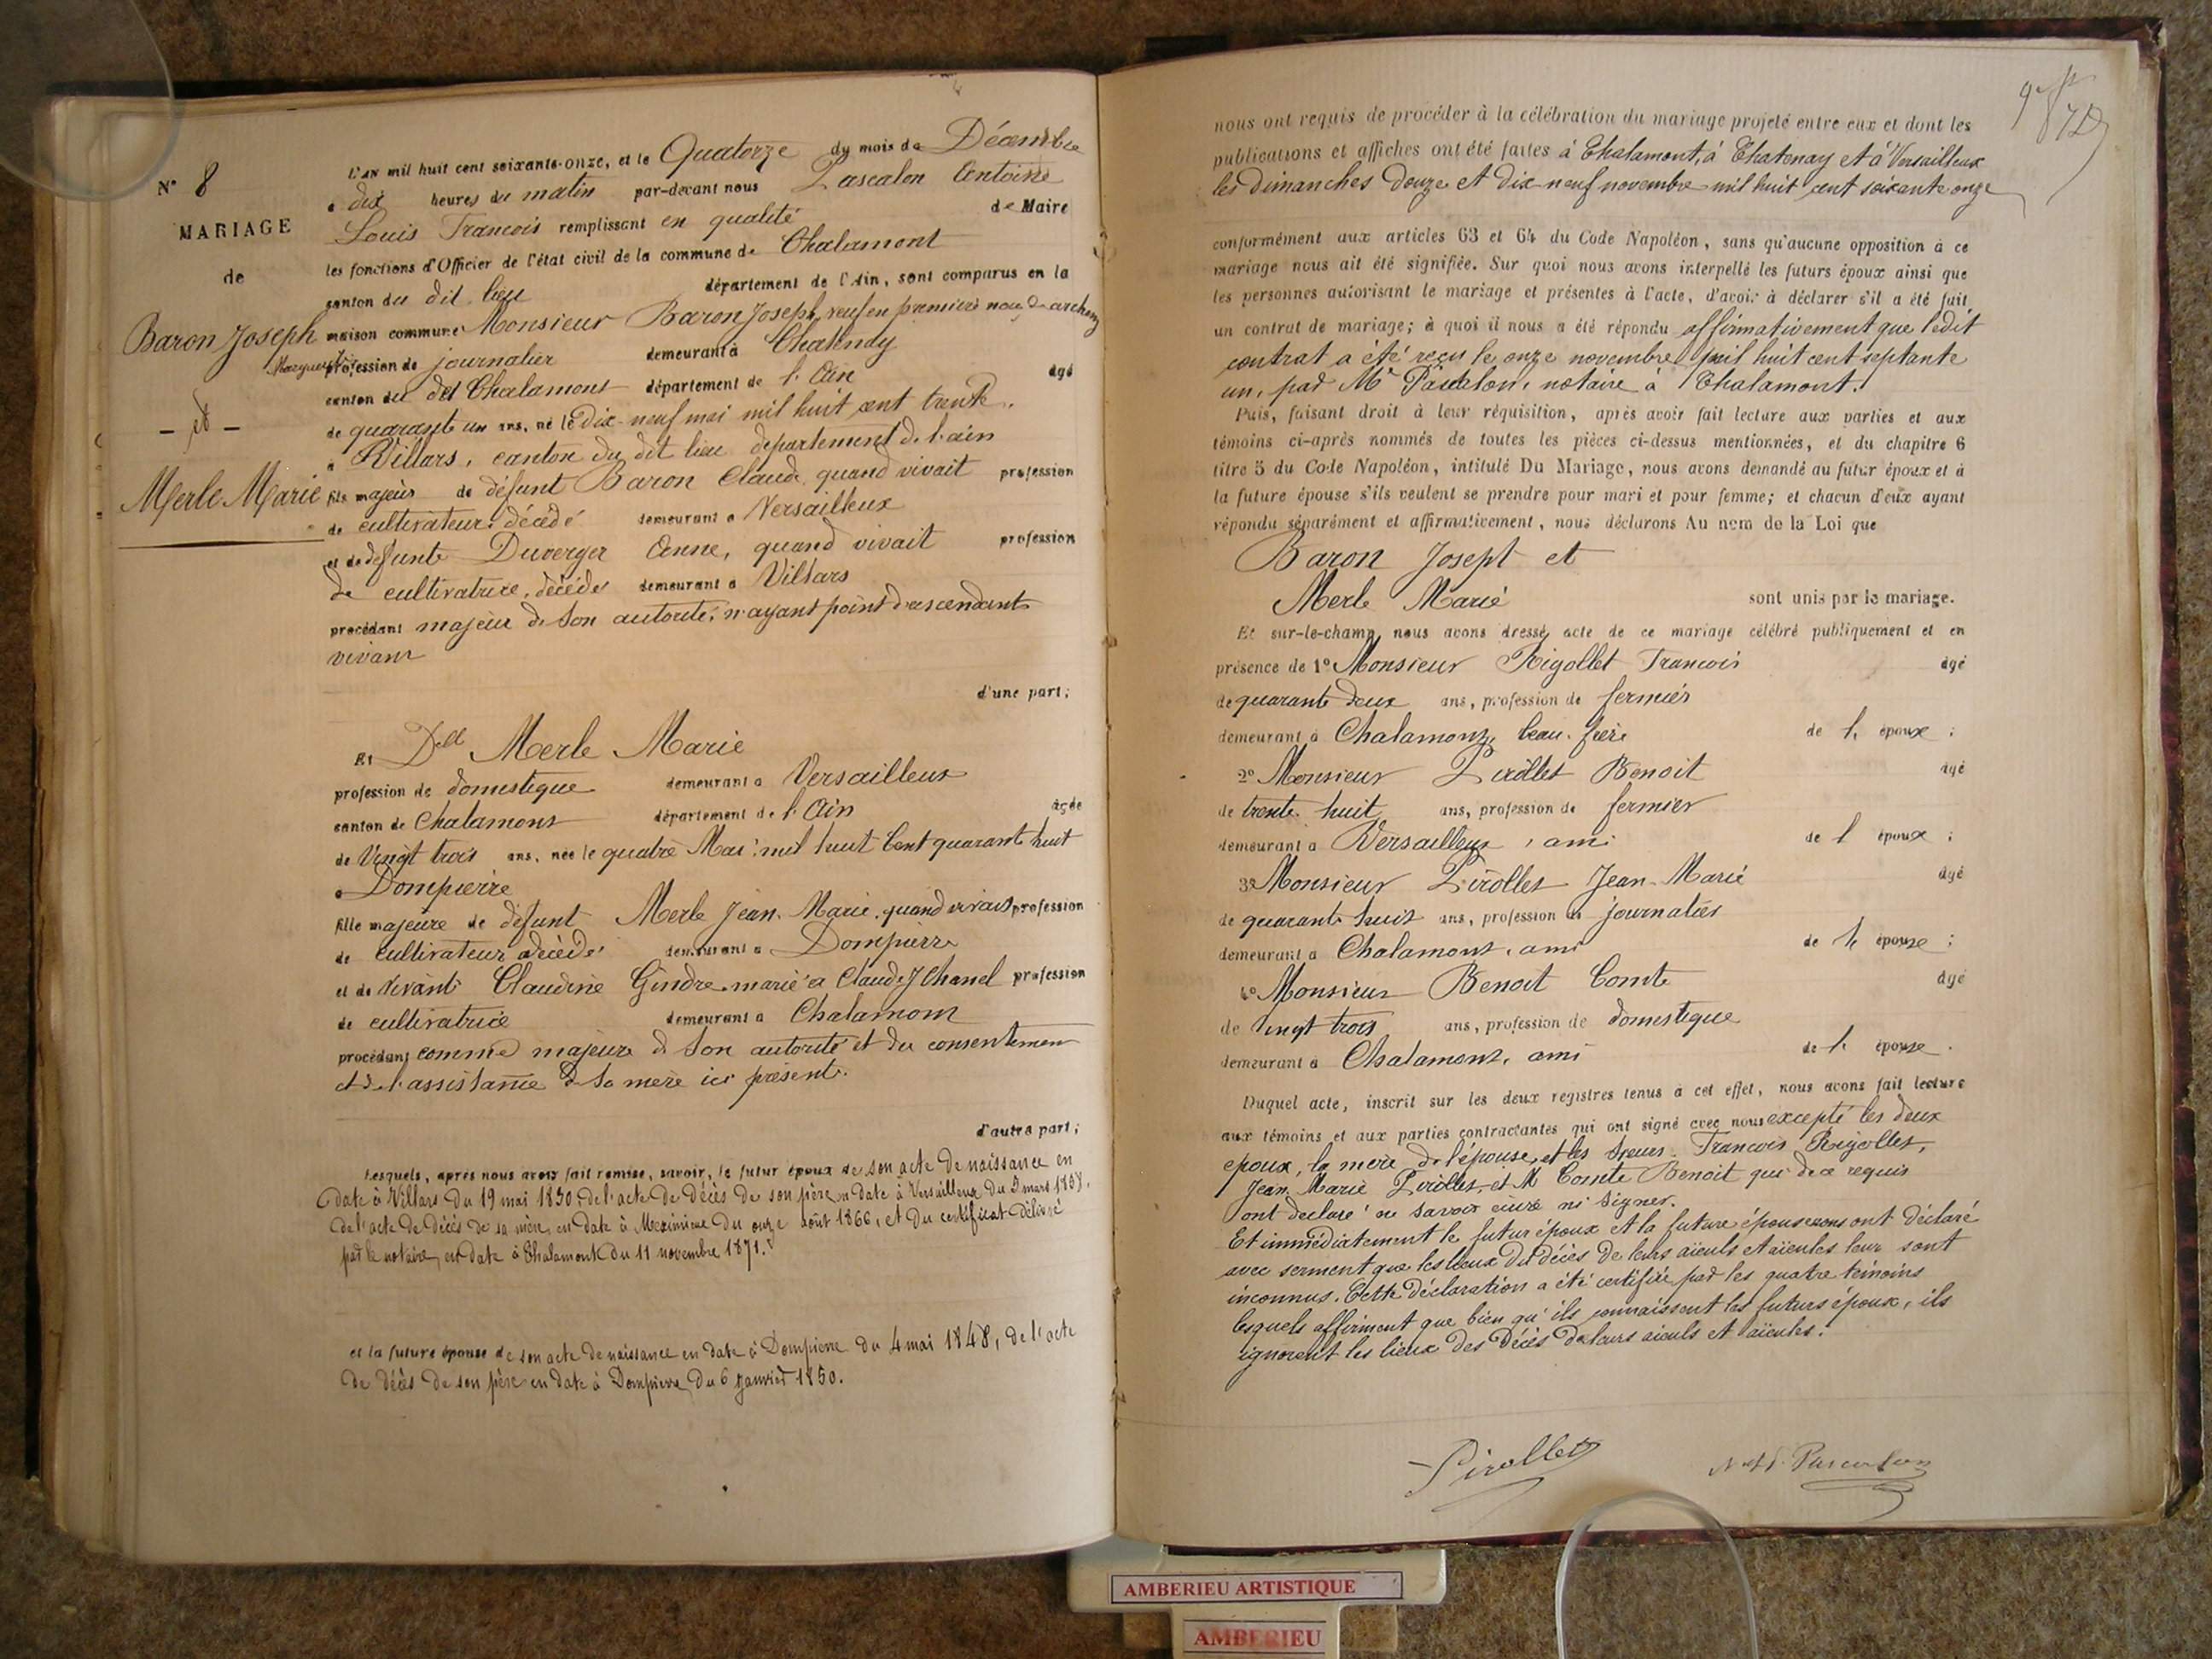 N° 8
MARIAGE
de
Baron Joseph
- et -
Merle Marie
L'AN mil huit cent soixante-onze, et le Quatorze du mois de Décembre
à dix heures du matin par-devant nous Pascalon Antoine
Louis François remplissant en qualité de Maire
les fonctions d'Officier de l'état civil de la commune de Chalamont
canton du dit lieu département de l'Ain, sont comparus en la
maison commune Monsieur Baron Joseph, veuf en premières noces de
profession de journalier demeurant à Chatenay
canton du dit Chalamont département de l'Ain âgé
de quarante un ans, né le Dix-neuf mai mil huit cent trente,
à Villars, canton du dit lieu département de l'ain
fils majeur de défunt Baron Claude, quand vivait profession
de cultivateur, décédé demeurant à Versailleux
et de défunte Duverger Anne, quand vivait profession
de cultivatrice, décédée demeurant à Villars
procédant majeur de son autorité, n'ayant point d'ascendants
vivant
d'une part;
Et Dlle Merle Marie
profession de domestique demeurant à Versailleux
canton de Chalamont département de l'Ain âgée
de Vingt trois ans, née le quatre Mai mil huit Cent quarante huit
à Dompierre
fille majeure de défunt Merle Jean-Marie, quand vivait profession
de cultivateur décédé demeurant à Dompierre
et de vivante Claudine Gindre mariée à Claude Chanel profession
de cultivatrice demeurant à Chalamont
procédant comme majeure de son autorité et du consentement
et de l'assistance de sa mère ici présente.
d'autre part;
Lesquels, après nous avoir fait remise, savoir, le futur époux de son acte de naissance en
date à Villars du 19 mai 1830 de l'acte de décès de son père en date à Versailleux du 5 mars
de l'acte de décès de sa mère, en date à Meximieux du onze août 1866, et du certificat délivré
par le notaire, en date à Chalamont du 11 novembre 1871.
et la future épouse de son acte de naissance en date à Dompierre du 4 mai 1848, de l'acte
de décès de son père en date à Dompierre du 6 janvier 1850.
nous ont requis de procéder à la célébration du mariage projeté entre eux et dont les
publications et affiches ont été faites à Chalamont, à Chatenay et à Versailleux
les dimanches douze et dix-neuf novembre mil huit cent soixante onze
conformément aux articles 63 et 64 du Code Napoléon, sans qu'aucune opposition à ce
mariage nous ait été signifiée. Sur quoi nous avons interpellé les futurs époux ainsi que
les personnes autorisant le mariage et présentes à l'acte, d'avoir à déclarer s'il a été fait
un contrat de mariage; à quoi il nous a été répondu affirmativement que ledit
contrat a été reçu le onze novembre mil huit cent septante
un, par Me Pascalon, notaire à Chalamont.
Puis, faisant droit à leur réquisition, après avoir fait lecture aux parties et aux
témoins ci-après nommés de toutes les pièces ci-dessus mentionnées, et du chapitre 6
titre 5 du Code Napoléon, intitulé Du Mariage, nous avons demandé au futur époux et à
la future épouse s'ils veulent se prendre pour mari et pour femme; et chacun d'eux ayant
répondu séparément et affirmativement, nous déclarons Au nom de la Loi que
Baron Joseph et
Merle Marie sont unis par le mariage.
Et sur-le-champ nous avons dressé acte de ce mariage célébré publiquement et en
présence de 1° Monsieur Rigollet François âgé
de quarante deux ans, profession de fermier
demeurant à Chalamont, beau-frère de l' époux ;
2° Monsieur Pirollet Benoit âgé
de trente-huit ans, profession de fermier
demeurant à Versailleux, ami de l' époux ;
3° Monsieur Pirollet Jean-Marie âgé
de quarante huit ans, profession de journalier
demeurant à Chalamont, ami de l' épouse ;
4° Monsieur Benoit Comte âgé
de vingt trois ans, profession de domestique
demeurant à Chalamont, ami de l' épouse.
Duquel acte, inscrit sur les deux registres tenus à cet effet, nous avons fait lecture
aux témoins et aux parties contractantes qui ont signé avec nous excepté les deux
époux, la mère de l'épouse, et les Sieurs François Rigollet,
Jean Marie Pirollet, et M Comte Benoit qui de ce requis
ont déclaré ne savoir écrire ni signer.
Et immédiatement le futur époux et la future épouse nous ont déclaré
avec serment que les lieux du décès de leurs aïeuls et aïeules leur sont
inconnus. Cette déclaration a été certifiée par les quatre témoins
lesquels affirment que bien qu'ils connaissent les futurs époux, ils
ignorent les lieux des décès de leurs aïeuls et aïeules.
Pirollet
Pascalon
AMBERIEU ARTISTIQUE
AMBERIEU